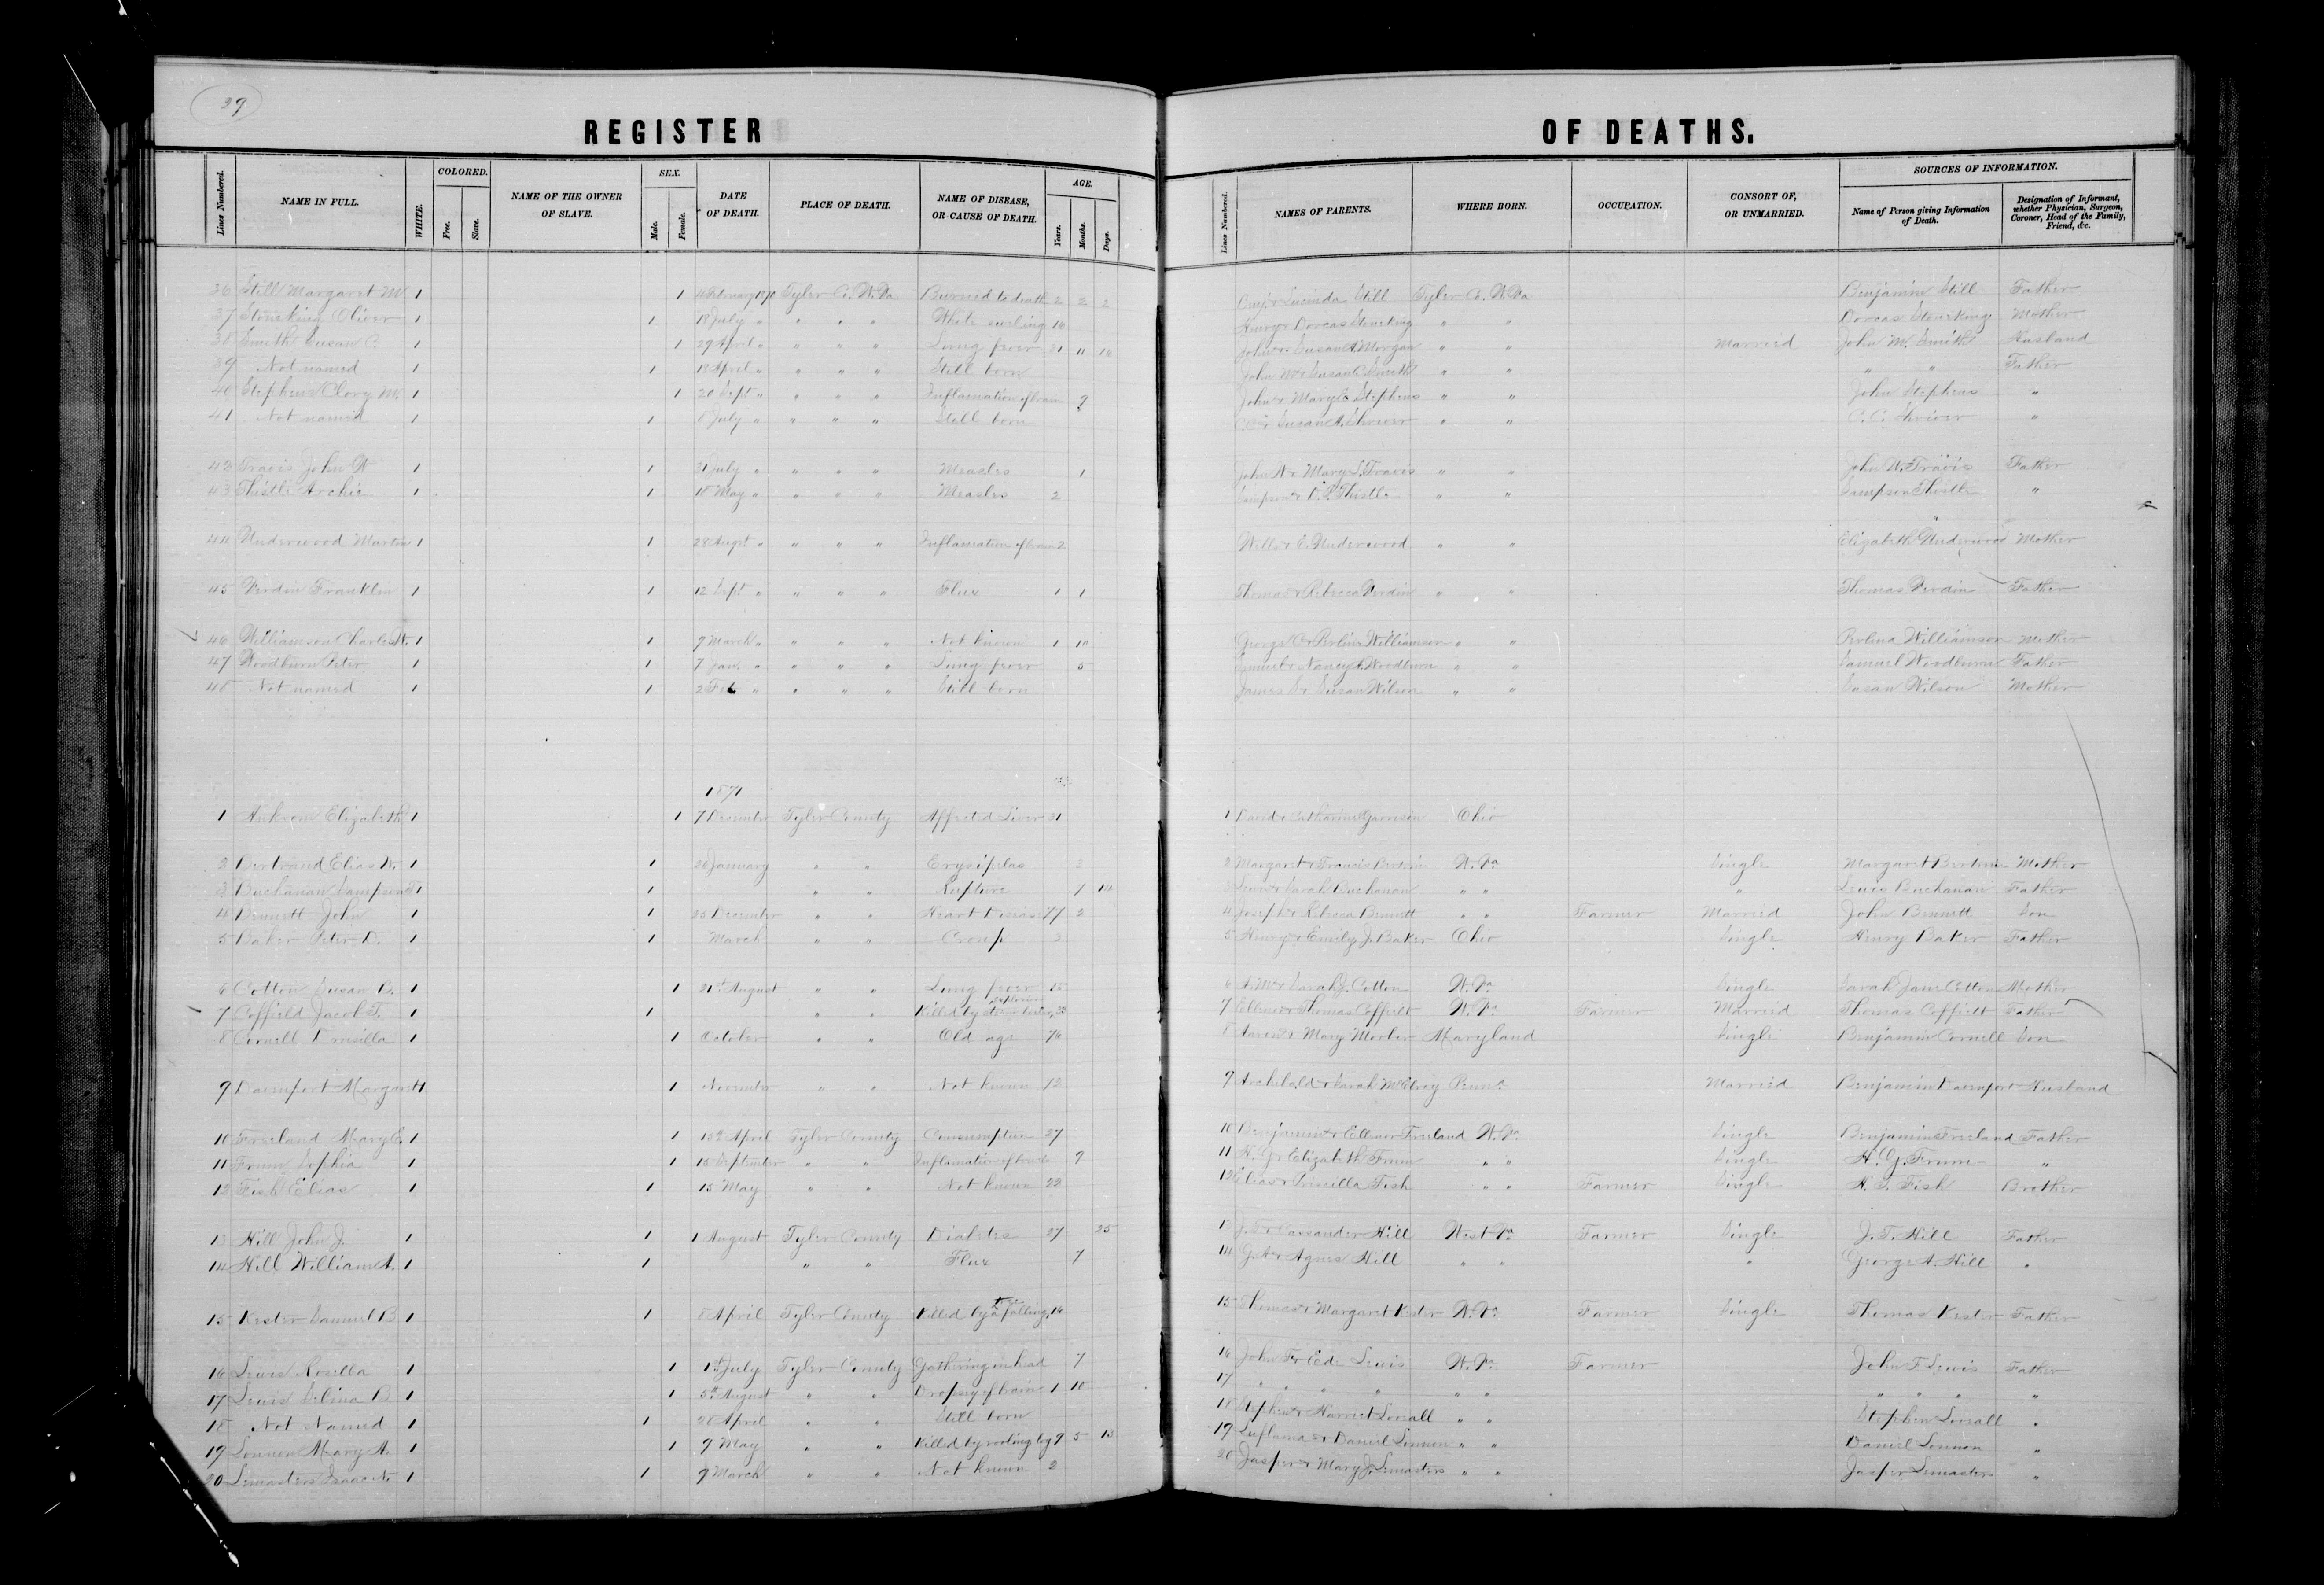 39
REGISTER OF DEATHS.
Lines Numbered. NAME IN FULL. WHITE. COLORED. Free. Slave. NAME OF THE OWNER OF SLAVE. SEX. Male. Female. DATE OF DEATH. PLACE OF DEATH. NAME OF DISEASE, OR CAUSE OF DEATH. AGE. Years. Months. Days. Lines Numbered. NAMES OF PARENTS. WHERE BORN. OCCUPATION. CONSORT OF, OR UNMARRIED. SOURCES OF INFORMATION. Name of Person giving Information of Death. Designation of Informant, whether Physician, Surgeon, Coroner, Head of the Family, Friend, &c.
36 Still Margaret M 1 1 February 1871 Tyler Co. W.Va Burned to death 2 2 2 Benj & Lucinda Still Tyler Co. W.Va Benjamin Still Father
37 Stoneking Oliver 1 1 18 July " " " " White swelling 16 Henry & Dorcas Stoneking " " Dorcas Stoneking Mother
38 Smith Susan C. 1 1 29 April " " " " Lung fever 21 11 John & Susan A Morgan " " Married John M. Smith Husband
39 Not named 1 1 18 April " " " " Still born John M & Susan C. Smith " " " " Father
40 Stephens Clory M. 1 1 20 Sept " " " " Inflamation of brain 9 John & Mary Stephens " " John Stephens "
41 Not named 1 1 8 July " " " " Still born C.C. & Susan A. Shriver " " C. C. Shriver "
42 Travis John W 1 1 31 July " " " " Measles 1 John W & Mary S. Travis " " John W. Travis Father
43 Thistle Archie 1 1 18 May " " " " Measles 2 Sampson & Thistle " " Sampson Thistle "
44 Underwood Martin 1 1 28 Augst " " " " Inflamation of brain 2 Will & E. Underwood " " Elizabeth Underwood Mother
45 Virdin Franklin 1 1 12 Sept " " " " Flux 1 1 Thomas & Rebecca Virdin " " Thomas Virdin Father
46 Williamson Charles W. 1 1 9 March " " " " Not known 1 10 George & Perlina Williamson " " Perlina Williamson Mother
47 Woodburn Peter 1 1 7 Jan. " " " " Lung fever 5 Samuel & Nancy Woodburn " " Samuel Woodburn Father
48 Not named 1 1 2 Feb " " " " Still born James S & Susan Wilson " " Susan Wilson Mother
1871
1 Ankrom Elizabeth 1 1 7 December Tyler County Affected Liver 31 1 David & Catharine Garrison Ohio
2 Bertrand Elias W. 1 1 26 January " " Erysiplas 2 2 Margaret & Francis W.Va Single Margaret Mother
3 Buchanan Sampson 1 1 " " Rupture 7 14 3 Lewis & Sarah Buchanan " " " Lewis Buchanan Father
4 Bennett John 1 1 25 December " " Heart Disease 77 2 4 Joseph & Rebecca Bennett " " Farmer Married John Bennett Son
5 Baker Peter D. 1 1 March " " Croup 3 5 Henry & Emily J. Baker Ohio Single Henry Baker Father
6 Cotton Susan 1 1 21st August " " Lung fever 15 6 A. M. & Sarah J. Cotton W.Va Single Sarah Jane Cotton Mother
7 Coffield Jacob T. 1 1 " " Killed by steam boiler explosion 7 Ellenor & Thomas Coffield W.Va Farmer Married Thomas Coffield Father
8 Cornell Drusilla 1 1 October " " Old age 74 8 Aaron & Mary Maryland Single Benjamin Cornell Son
9 Davenport Margaret 1 1 November " " Not known 72 9 Archibald & Sarah McElroy Penna Married Benjamin Davenport Husband
10 Freeland Mary E. 1 1 15th April Tyler County Consumption 27 10 Benjamin & Ellenor Freeland W.Va Single Benjamin Freeland Father
11 Frum Sophia 1 1 15 September " " Inflamation of 9 11 H. G. & Elizabeth Frum " " Single H. G. Frum "
12 Fish Elias 1 1 15 May " " Not known 23 12 Elias & Priscilla Fish " " Farmer Single Fish Brother
13 Hill John J. 1 1 1 August Tyler County Diabetes 27 25 13 J. T. & Cassander Hill West Va Farmer Single J. T. Hill Father
14 Hill William A. 1 1 " " Flux 7 14 G. A. & Agnes Hill " " " George A. Hill "
15 Kester Samuel B 1 1 8 April Tyler County Killed by a tree falling 16 15 Thomas & Margaret Kester W.Va Farmer Single Thomas Kester Father
16 Lewis Rosilla 1 1 1st July Tyler County Gathering on head 7 16 John F & Ed. Lewis W.Va Farmer John F Lewis Father
17 Lewis Selina B 1 1 5th August " " Dropsy of brain 1 10 17 " " " " " " " " " "
18 Not Named 1 1 28 April " " Still born 18 Stephen & Harriet " " Stephen "
19 Lennon Mary A. 1 1 9 May " " Killed by rooling log 9 5 13 19 & Daniel Lennon " " Daniel Lennon "
20 Lemasters Isaac N. 1 1 9 March " " Not known 2 20 Jasper & Mary J. Lemasters " " Jasper Lemasters "